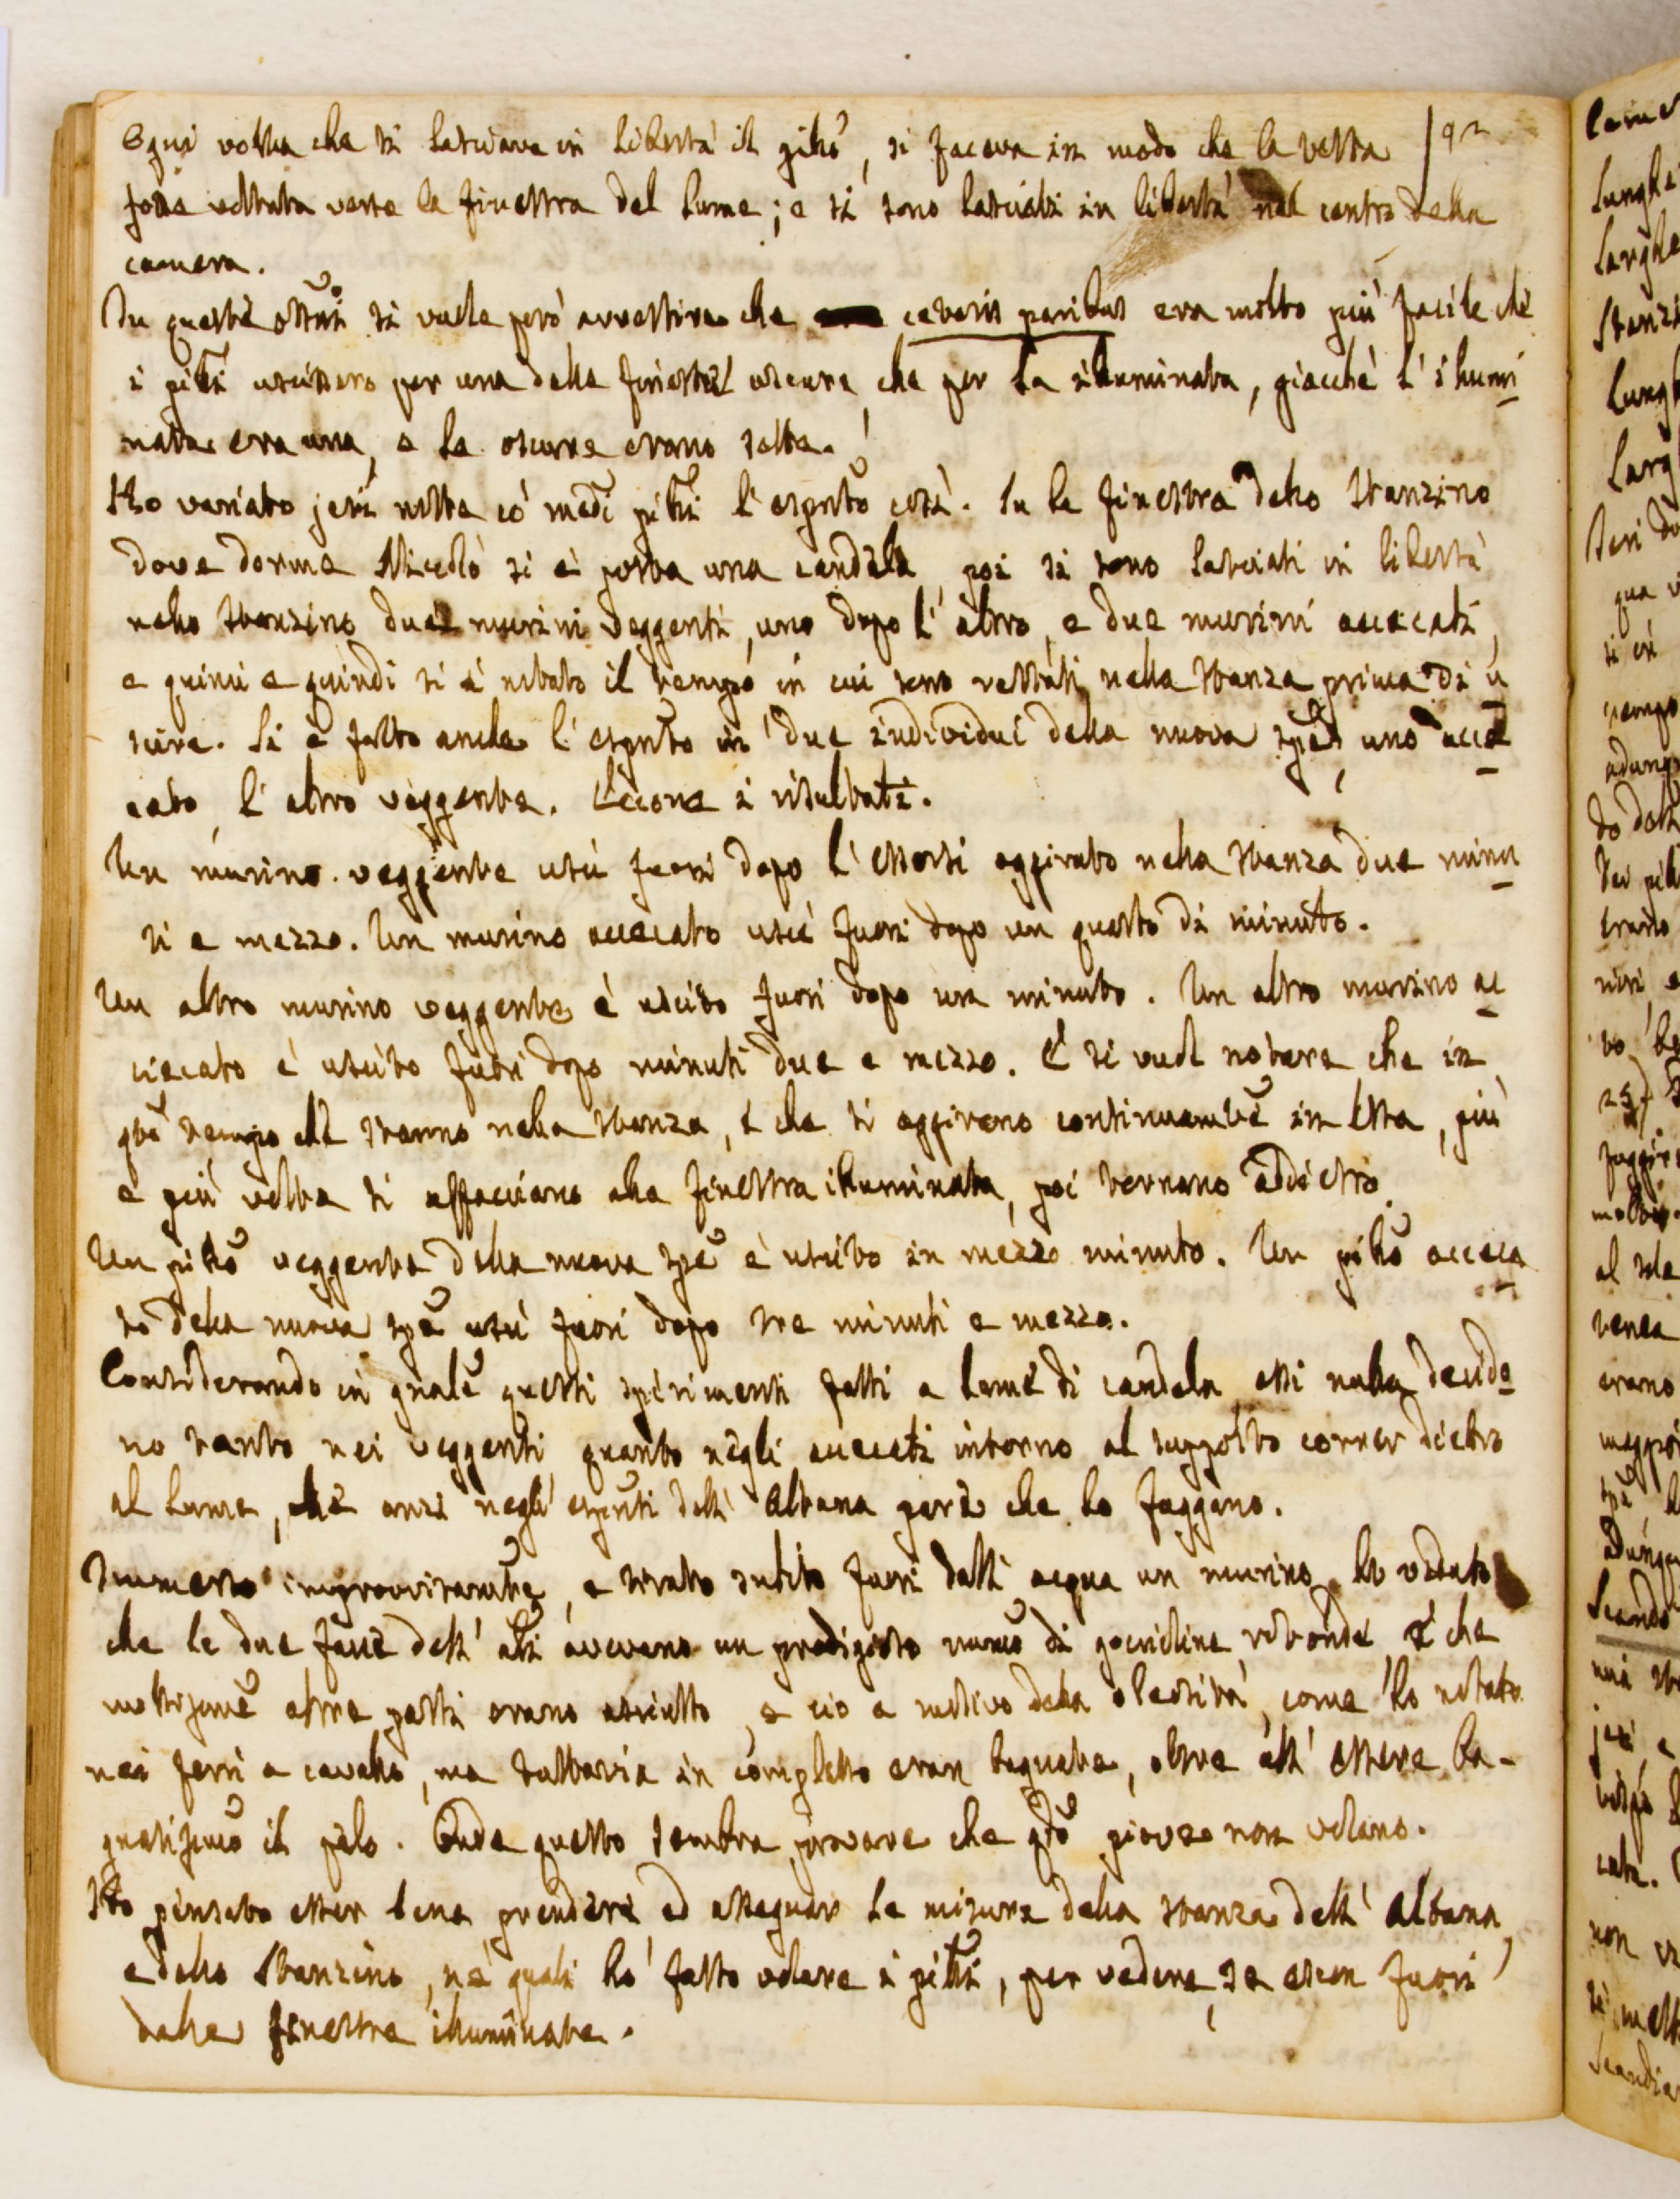 Ogni volta che si lasciava in libertà il pillo, si faceva in modo che la testa
fosse voltata verso la finestra del lume; e si sono lasciati in libertà nel centro della
camera.
In queste ossni si vuole però avvertire che ceteris paribus era molto più facile che
i pilli uscissero per una delle finestre oscure, che per la illuminata, giacchè l'illumi
nata era una, e le oscure erano sette.
Ho variato jeri notte co' med.i pilli l'esprito così. Su la finestra dello Stanzino
dove dorme Niccolò si è posta una candela, poi si sono lasciati in libertà
nello stanzino due murini veggenti, uno dopo l'altro, e due murini accecati,
e quivi e quindi si è notato il tempo in cui sono restati nella stanza prima di u
scire. Si è fatto anche l'esprito in due individui della nuova spe, uno acce
cato, l'altro veggente. Eccone i risultati.
Un murino veggente uscì fuori dopo l'essersi aggirato nella stanza due minu
ti e mezzo. Un murino accecato uscì fuori dopo un quarto di minuto.
Un altro murino veggente è uscito fuori dopo un minuto. Un altro murino ac
ciecato è uscito fuori dopo minuti due e mezzo. E si vuol notare che in
qto tempo che stanno nella stanza, e che si aggirano continuamte in essa, più
e più volte si affacciano alla finestra illuminata, poi tornano addietro.
Un pillo veggente della nuova spe è uscito in mezzo minuto. Un pillo acceca
to della nuova spe uscì fuori dopo tre minuti e mezzo.
Considerando in gnale questi sperimenti fatti a lume di candela essi nulla decido
no tanto nei veggenti quanto negli accecati intorno al supposto correr dietro
al lume, che anzi negli espriti dell' Altana pare che lo fuggano.
Immerso improvvisamte, e tirato subito fuori dall' acqua un murino ho veduto
che le due facce dell' ali avevano un prodigioso numo di goccioline rotonde, e che
moltisme altre parti erano asciutte, e ciò a motivo della oleosità, come ho notato
nei ferri a cavallo, ma tuttavia in complesso eran bagnate, oltre all' essere ba-
gnatisimo il pelo. Onde questo sembra provare che qdo piove non volano.
Ho pensato esser bene prendere ed assegnare le misure della stanza dell' Altana,
e dello Stanzino, ne' quali ho fatto volare i pilli, per vedere se escon fuori
dalle finestre illuminate.